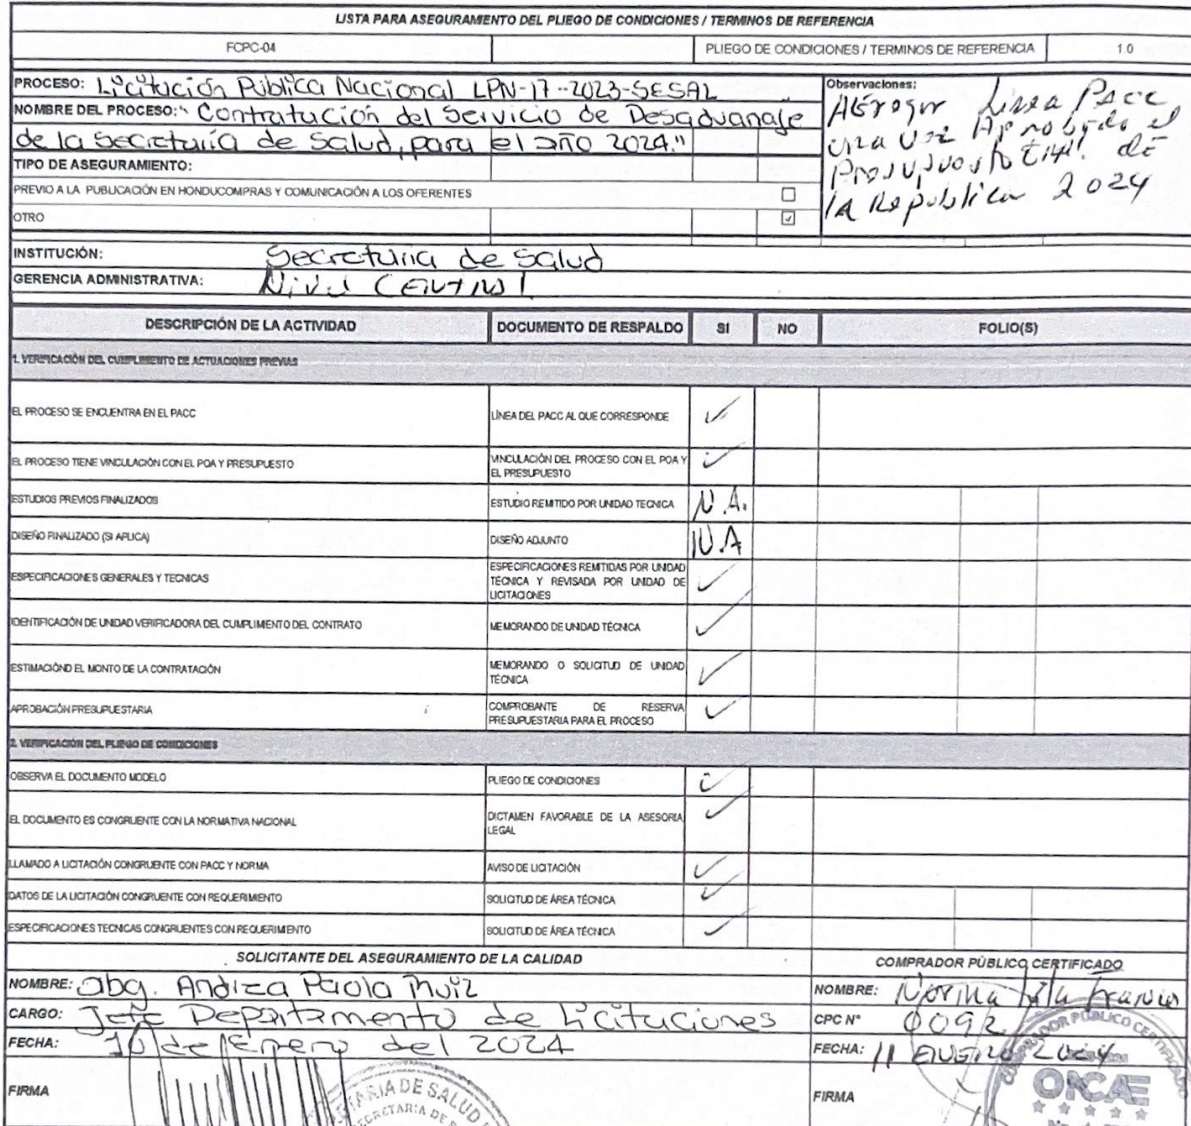 LISTA PARA ASEGURAMENTO DEL PLIEGO DE CONDICIONES / TERMINOS DE REFERENCIA
FCPC-04 PLIEGO DE CONDICIONES / TERMINOS DE REFERENCIA 1.0
PROCESO: Licitución Pública Nacional LPN-17-2023-SESAL
NOMBRE DEL PROCESO: "Contratución del Servicio de Desaduanaje
de la Secretaría de Salud, para el año 2024."
TIPO DE ASEGURAMIENTO:
PREVIO A LA PUBLICACIÓN EN HONDUCOMPRAS Y COMUNICACIÓN A LOS OFERENTES
OTRO
Observaciones:
Linea Pacc
una vez Aprobado el
de
la Republica 2024
INSTITUCIÓN: Secretaria de Salud
GERENCIA ADMINISTRATIVA: Nivel Central
DESCRIPCIÓN DE LA ACTIVIDAD DOCUMENTO DE RESPALDO SI NO FOLIO(S)
1. VERIFICACIÓN DEL CUMPLIMIENTO DE ACTUACIONES PREVIAS
EL PROCESO SE ENCUENTRA EN EL PACC LÍNEA DEL PACC AL QUE CORRESPONDE ✓
EL PROCESO TIENE VINCULACIÓN CON EL POA Y PRESUPUESTO VINCULACIÓN DEL PROCESO CON EL POA Y
EL PRESUPUESTO ✓
ESTUDIOS PREVIOS FINALIZADOS ESTUDIO REMITIDO POR UNIDAD TECNICA N.A.
DISEÑO FINALIZADO (SI APLICA) DISEÑO ADJUNTO N.A
ESPECIFICACIONES GENERALES Y TECNICAS ESPECIFICACIONES REMITIDAS POR UNIDAD
TÉCNICA Y REVISADA POR UNIDAD DE
LICITACIONES ✓
IDENTIFICACIÓN DE UNIDAD VERIFICADORA DEL CUMPLIMENTO DEL CONTRATO MEMORANDO DE UNIDAD TÉCNICA ✓
ESTIMACIÓND EL MONTO DE LA CONTRATACIÓN MEMORANDO O SOLICITUD DE UNIDAD
TÉCNICA ✓
APROBACIÓN PRESUPUESTARIA COMPROBANTE DE RESERVA
PRESUPUESTARIA PARA EL PROCESO ✓
2. VERIFICACIÓN DEL PLIEGO DE CONDICIONES
OBSERVA EL DOCUMENTO MODELO PLIEGO DE CONDICIONES ✓
EL DOCUMENTO ES CONGRUENTE CON LA NORMATIVA NACIONAL DICTAMEN FAVORABLE DE LA ASESORIA
LEGAL ✓
LLAMADO A LICITACIÓN CONGRUENTE CON PACC Y NORMA AVISO DE LICITACIÓN ✓
DATOS DE LA LICITACIÓN CONGRUENTE CON REQUERIMIENTO SOLICITUD DE ÁREA TÉCNICA ✓
ESPECIFICACIONES TECNICAS CONGRUENTES CON REQUERIMENTO SOLICITUD DE ÁREA TÉCNICA ✓
SOLICITANTE DEL ASEGURAMIENTO DE LA CALIDAD
NOMBRE: Abg. Andrea Paola Ruiz
CARGO: Jefe Departamento de Licituciones
FECHA: 10 de Enero del 2024
FIRMA
COMPRADOR PÚBLICO CERTIFICADO
NOMBRE: Norma
CPC N° 0092
FECHA: 11 ENERO 2024
FIRMA
SECRETARIA DE SALUD
COMPRADOR PUBLICO CERTIFICADO
ONCAE